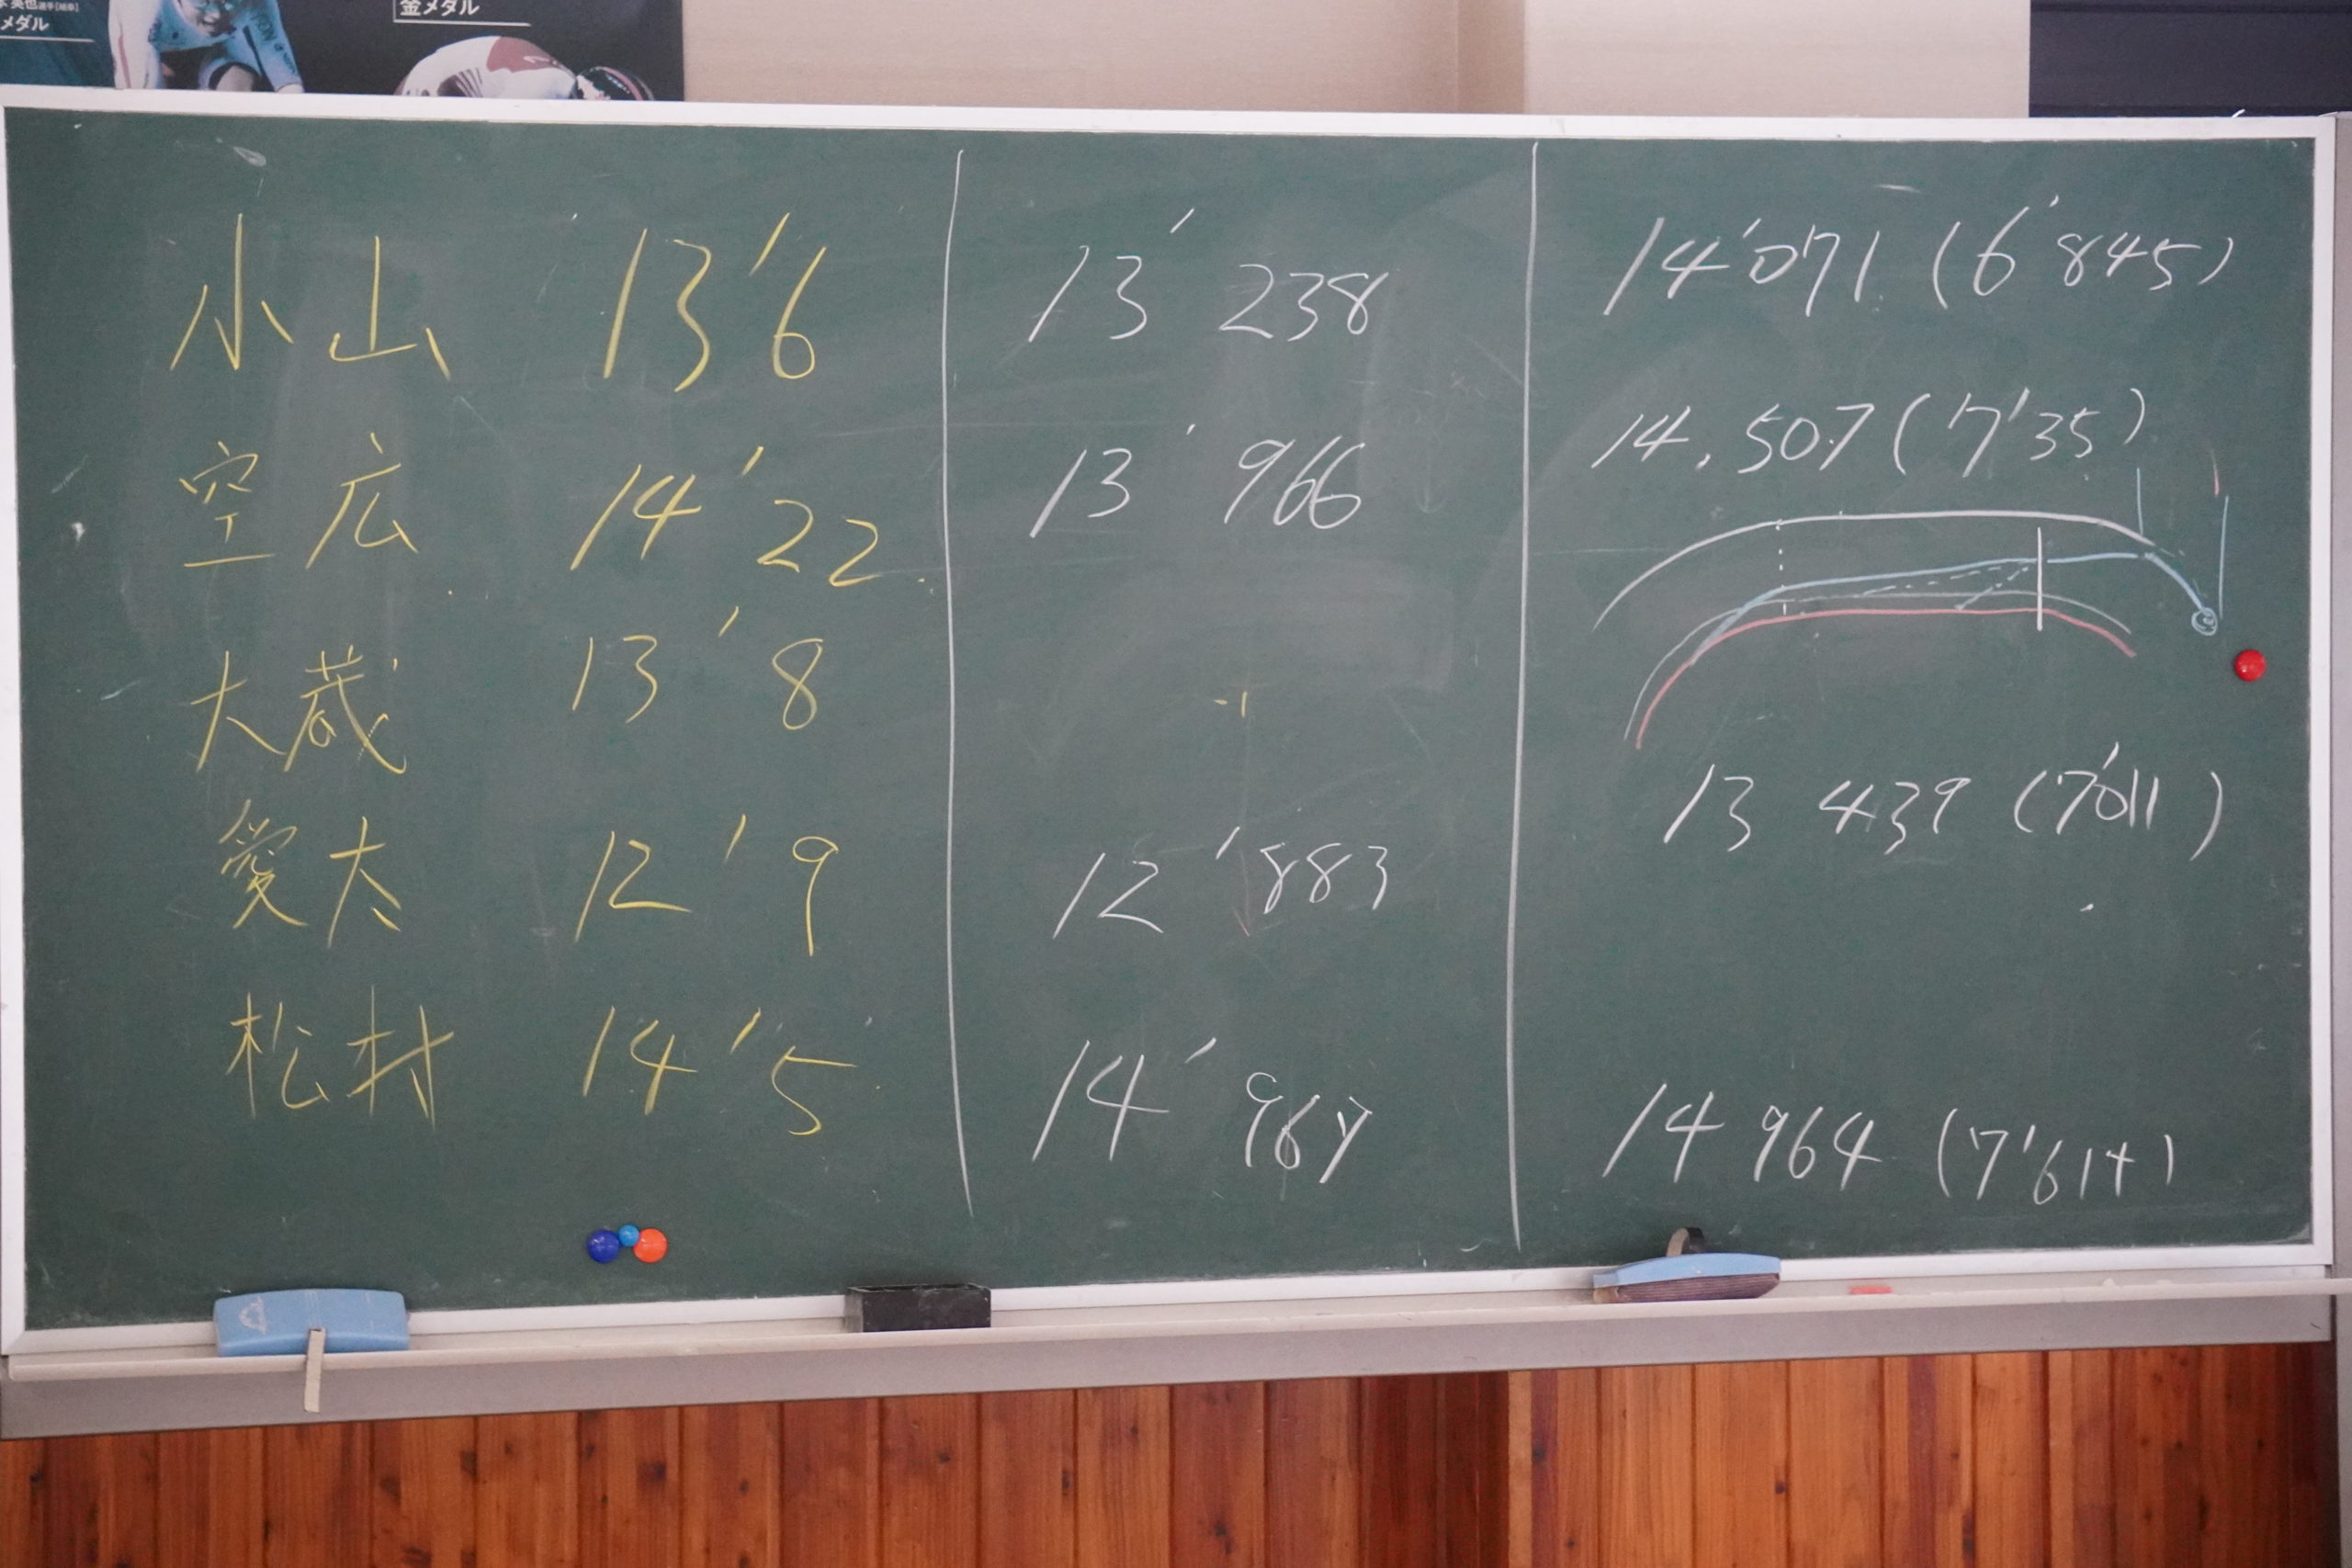 メダル
金メダル
小山 13'6 13' 238 14'071 (6'845)
空広 14'22 13' 966 14.507 (7'35)
大蔵 13'8
愛太 12'9 12'883 13 439 (7'011)
松村 14'5 14' 967 14 964 (7'614)